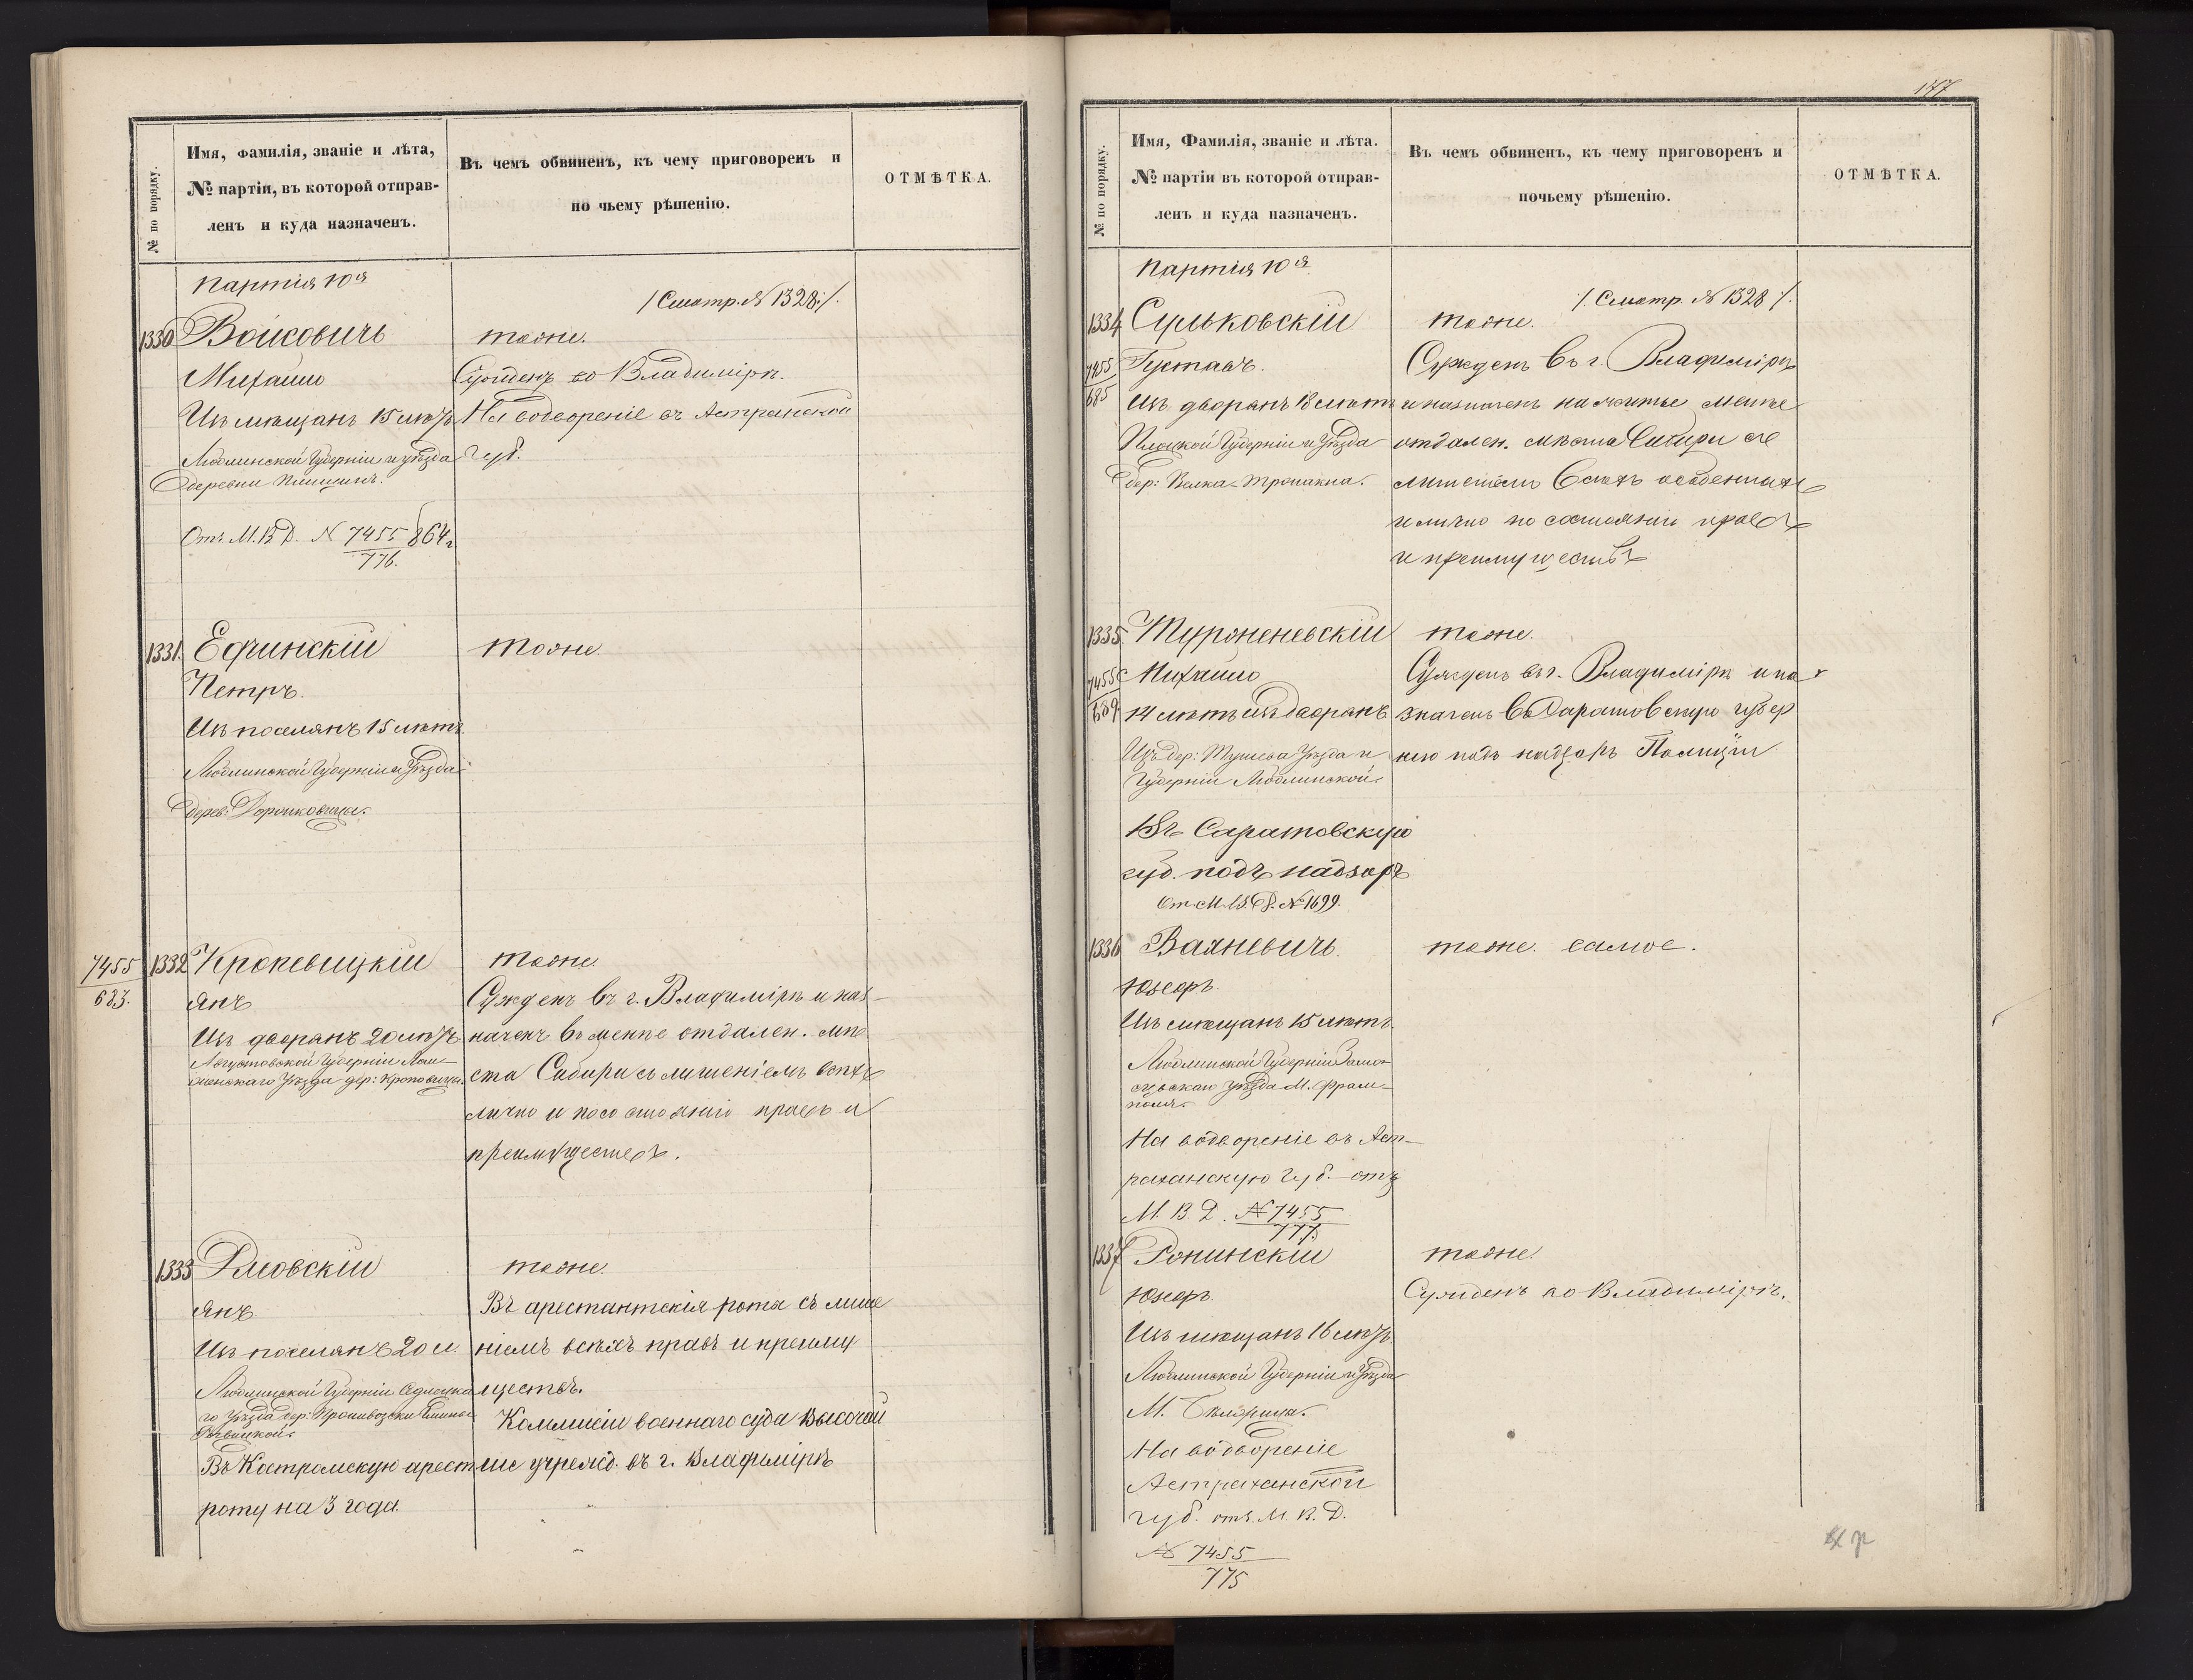 № по порядку.
Имя, Фамилія, званіе и лѣта,
№ партіи, въ которой отправ-
ленъ и куда назначенъ.
Въ чемъ обвиненъ, къ чему приговоренъ и
по чьему рѣшенію.
ОТМѢТКА.
Партія 10я
/Смотр. № 1328/.
1330 Войсовичъ
тоже.
Михаилъ
Сужденъ во Владимірѣ.
Изъ мѣщанъ 15 лѣтъ
На водвореніе въ Астраханской
Люблинской Губерніи и уѣзда
губ.
деревни
Отъ М. В. Д. № 7455 864г
776.
1331. Ефинскій
тоже
Петръ.
Изъ поселянъ 15 лѣтъ.
Люблинской Губерніи и Уѣзда
дерев:
7455
683.
1332 Кропевицкій
тоже
Янъ
Сужденъ въ г. Владимірѣ и наз-
Изъ дворянъ 20 лѣтъ
наченъ въ менѣе отдален. мѣ
Августовской Губерніи Лом-
жинскаго Уѣзда дер:
ста Сибири съ лишеніемъ всѣхъ
лично и по состоянію правъ и
преимуществъ.
1333 Рловскій
тоже.
Янъ
Въ арестантскія роты съ лише
Изъ поселянъ 20 л.
ніемъ всѣхъ правъ и преиму
Люблинской Губерніи Седлецка
ществъ.
го Уѣзда дер:
Коммисіи военнаго суда Высочай
Въ Костромскую арест
ше учрежд. въ г. Владимірѣ
роту на 3 года.
177
№ по порядку.
Имя, Фамилія, званіе и лѣта.
№ партіи въ которой отправ-
ленъ и куда назначенъ.
Въ чемъ обвиненъ, къ чему приговоренъ и
почьему рѣшенію.
ОТМѢТКА.
Партія 10я
/. Смотр. № 1328 /.
1334 Сульковскій
тоже.
7455
685
Густавъ.
Сужденъ въ г. Владимірѣ
Изъ дворянъ 18 лѣтъ
и назначенъ на житье менѣе
Плоцкой Губерніи и Уѣзда
отдален. мѣста Сибири съ
дер:
лишеніемъ всѣхъ особенныхъ
и лично по состоянію правъ
и преимуществъ
1335. Туроненевскій
тоже.
7455
689
Михаилъ
Сужденъ въ г. Владимірѣ и на
14 лѣтъ изъ дворянъ
значенъ въ Саратовскую губер
Изъ дер: Уѣзда и
нію подъ надзоръ Полиціи
Губерніи Люблинской.
Въ Саратовскую
губ. подъ надзоръ
От. М. В. Д. № 1699.
1336 Ваяневичъ.
тоже. самое.
Юзефъ.
Изъ мѣщанъ 15 лѣтъ.
Люблинской Губерніи Замос
цьскаго Уѣзда М. Фрам-
поля.
На водвореніе въ Аст-
раханскую губ. - отъ
М. В. Д. № 7455
777.
1337 Ронинскій
тоже
Юзефъ.
Сужденъ во Владимірѣ.
Изъ мѣщанъ 16 лѣтъ
Люблинской Губерніи и Уѣзда
М.
На водвореніе
Астраханской
губ. отъ. М. В. Д.
№ 7455
775